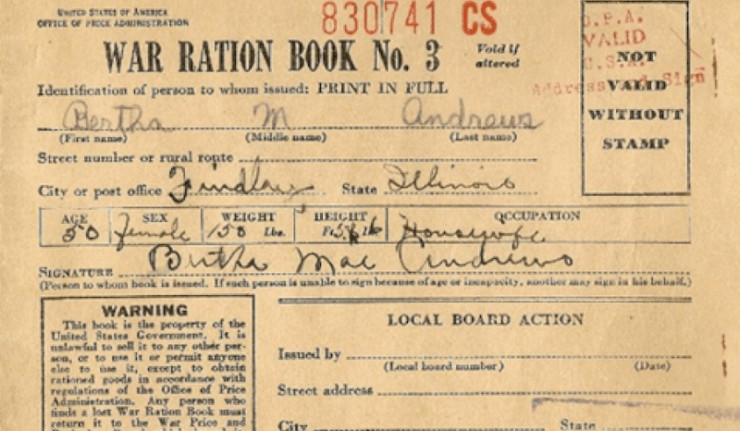 UNITED STATES OF AMERICA
OFFICE OF PRICE ADMINISTRATION
830741 CS
O.P.A.
VALID
U.S.A.
Address and Sign
WAR RATION BOOK No. 3
Void if
altered
NOT
VALID
WITHOUT
STAMP
Identification of person to whom issued: PRINT IN FULL
Bertha M Andrews
(First name) (Middle name) (Last name)
Street number or rural route
City or post office Findlay State Illinois
AGE SEX WEIGHT HEIGHT OCCUPATION
50 female 150 Lbs. Ft. In. Housewife
SIGNATURE Bertha Mae Andrews
(Person to whom book is issued. If such person is unable to sign because of age or incapacity, another may sign in his behalf.)
WARNING
This book is the property of the
United States Government. It is
unlawful to sell it to any other per-
son, or to use it or permit anyone
else to use it, except to obtain
rationed goods in accordance with
regulations of the Office of Price
Administration. Any person who
finds a lost War Ration Book must
return it to the War Price and
LOCAL BOARD ACTION
Issued by
(Local board number) (Date)
Street address
City State